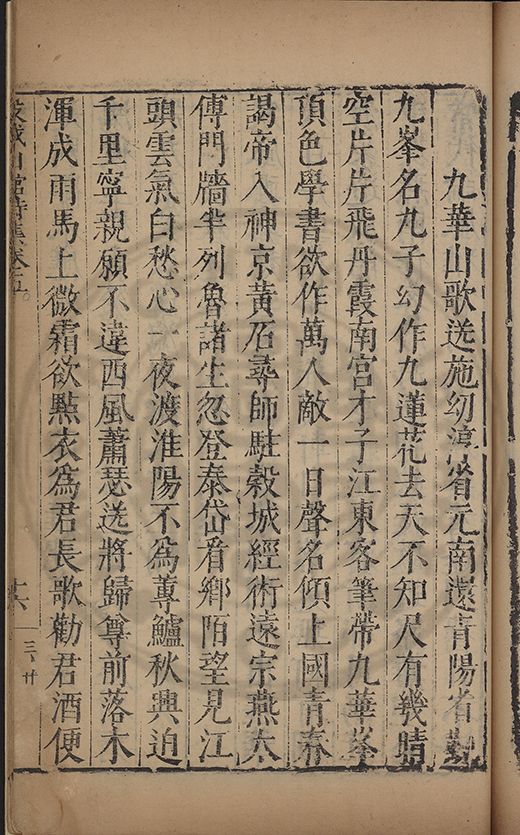 九華山歌送施幼淳省元南還青陽省覲
九峯名九子幻作九蓮花去天不知尺有幾晴
空片片飛丹霞南宮才子江東客筆帶九華峯
頂色學書欲作萬人敵一日聲名傾上國青春
謁帝入神京黃石尋師駐穀城經術遠宗燕太
傅門牆半列魯諸生忽登泰岱看鄉陌望見江
頭雲氣白愁心一夜渡淮陽不爲蓴鱸秋興迫
千里寧親願不違西風蕭瑟送將歸尊前落木
渾成雨馬上微霜欲點衣爲君長歌勸君酒便
穀城山館詩集卷之五
十六
三、廿